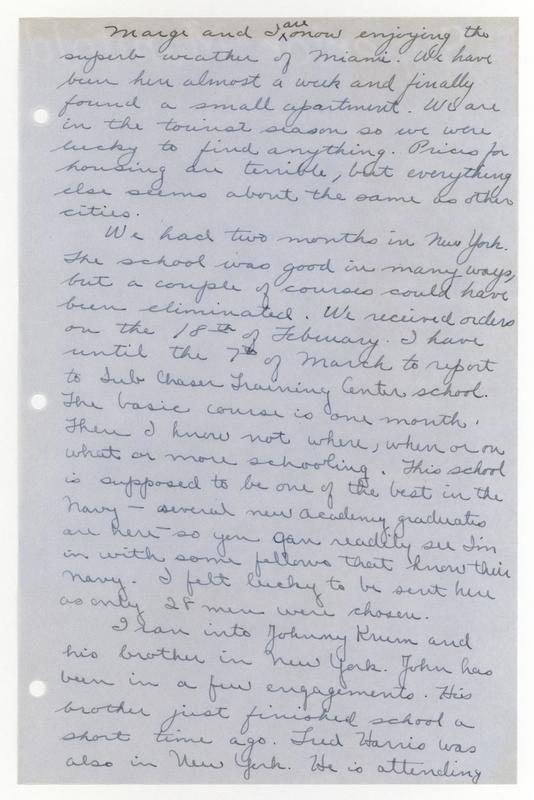 Marge and I are now enjoying the
superb weather of Miami. We have
been here almost a week and finally
found a small apartment. We are
in the tourist season so we were
lucky to find anything. Prices for
housing are terrible, but everything
else seems about the same as other
cities.
We had two months in New York.
The school was good in many ways,
but a couple of courses could have
been eliminated. We received orders
on the 18th of Febuary. I have
until the 7th of March to report
to Sub Chaser Training Center school.
The basic course is one month.
Then I know not where, when or on
what or more schooling. This school
is supposed to be one of the best in the
Navy — several new academy graduates
are here so you can readily see I'm
in with some fellows that know their
navy. I felt lucky to be sent here
as only 28 men were chosen.
I ran into Johnny Krum and
his brother in New York. John has
been in a few engagements. His
brother just finished school a
short time ago. Fred Harris was
also in New York. He is attending